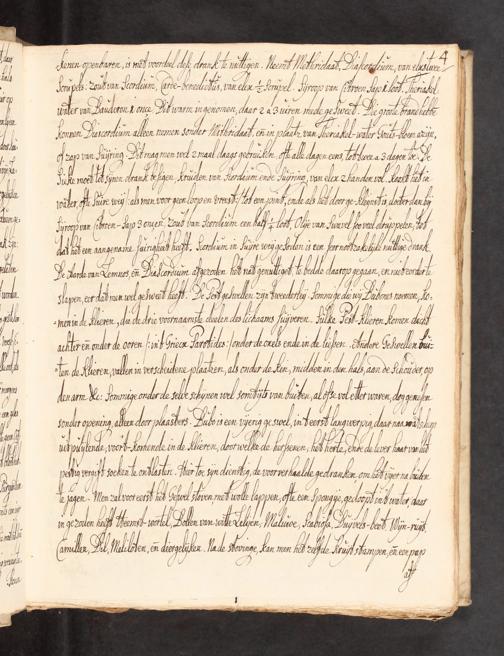 4
kenen openbaren, is met voordeel dese drank te nuttigen. Neemt Mithridaat, Diascordium, van elx twee
Scrupels: Zout van Scordium, Carde-benedictus, van elx ½ Scrupel. Syroop van Citroen Sap 1 loot. Theriakel-
water van Bauderon 1 once. Dit warm ingenomen, daar 2 a 3 uiren mede gesweet. Die groote brand hebben
konnen Diascordium alleen nemen sonder Mithridaat, en in plaats van Theriakel-water
of zap van Suijring. Dit mag men wel 2 maal daags gebruiken, oft alle dagen eens, tot twee a 3 dagen toe. De
Sieke moet tot sijnen drank besigen, kruiden van Scordium ende Suijring, van elx 2 handen vol. Kookt het in
water, ofte Suire weij als men voor een loop en vreest: tot een pint, ende als het door gekleijnst is, sonder dan bij
Syroop van Citroen-Sap 3 onçen. Zout van Scordium een half ½ loot, Olije van Suivel so veel druppelen, tot
dat het een aangename suirigheit heeft. Scordium in Suire weij gesoden is een seer nootzakelijke nuttige drank.
De Aarde van Lemnos, en Diascordium afgezoden het nat genuttigt, te bedde daarop gegaan, en niet eerder te
slapen, eer dat men wel gesweet heeft. De Pest-geswellen zijn tweederleij. Sommige die wij Bubones noemen, ko-
men in de klieren, die de drie voornaamste deelen des lichaams suijveren. Sulke Pest-klieren komen dicht
achter en onder de ooren: in 't Griecx Parotides: onder de oxels ende in de liesen. Andere Geswellen bui-
ten de klieren, vallen in verscheidene plaatzen, als onder de kin, midden in den hals, aan de schouder, op
den arm &c. Sommige onder de selve schijnen wel somtijts van buiten, al ofse vol etter waren, dog genesen
sonder opening, alleen door plaasters. Bubo is een vijerig geswel, in 't eerst langwerpig, daar na
uitpuijlende, voort-komende in de klieren, door welke de herssenen, het herte, ende de lever haar van het
pestig vergift soeken te ontlasten. Hier toe sijn dienstig, de voorverhaalde gedranken, om het vijer na buiten
te jagen. Men zal voor eerst het Geswel stoven met wolle lappen, ofte een Spongije, gedoopt in 't water, daar
in gezoden heeft Heemst-wortel, Bollen van witte Lelyen, Maluwe, Scabiosa, Duijvels-beet, Wijn-ruijt,
Camillen, Dil, Meliloten, en diergelijken. Na de stovinge, kan men het zelfde Kruijt stampen, en een pap